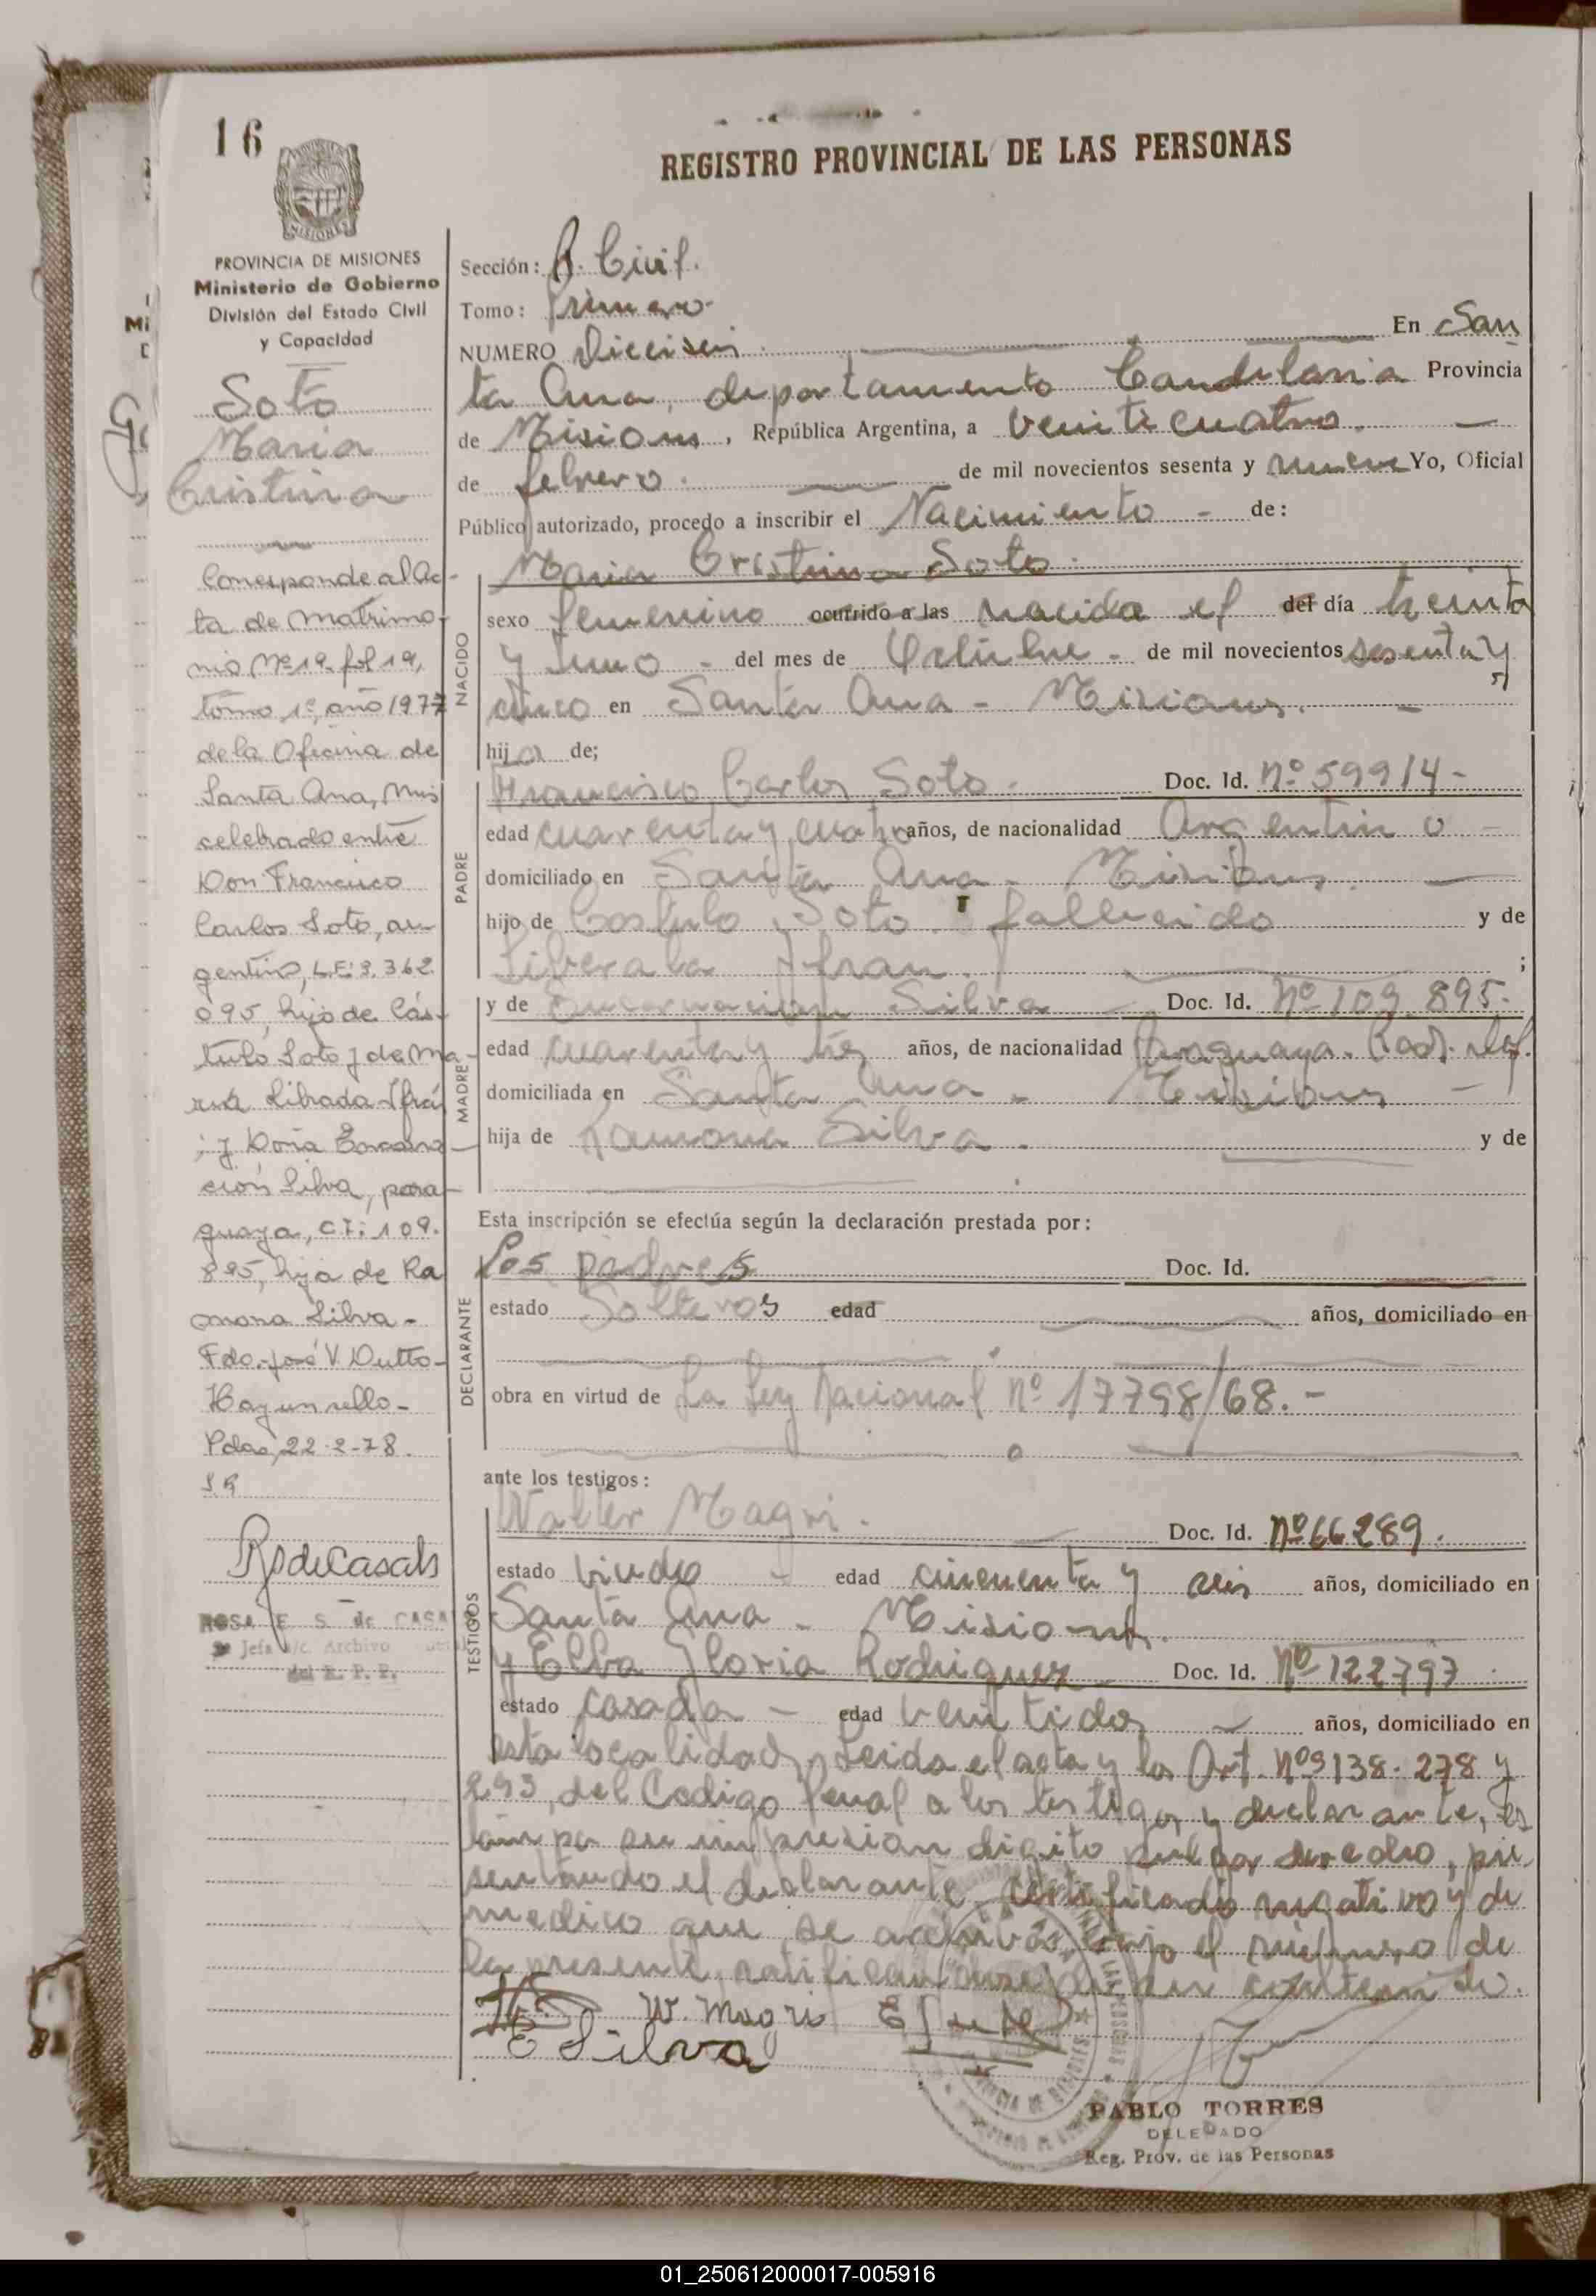 16
REGISTRO PROVINCIAL DE LAS PERSONAS
PROVINCIA DE MISIONES
Ministerio de Gobierno
División del Estado Civil
y Capacidad
Soto
Maria
Cristina
Corresponde al Ac-
ta de Matrimo-
nio Nº 19, fol 19,
tomo 1º, año 1977
de la Oficina de
Santa Ana, Mnes
celebrado entre
Don Francisco
Carlos Soto, ar-
gentino, L.E: 3.362.
095, hijo de Cás-
tulo Soto y de Ma-
ria Librada Ifrá
; y Doña Encarna-
ción Silva, para-
guaya, CI: 109.
895, hija de Ra
mona Silva -
Fdo. José V. Dutto-
Hay un sello -
Pdas, 22-2-78.
RS de Casals
ROSA E. S. de CASA
Jefa a/c. Archivo
del R. P. P.
Sección: R. Civil.
Tomo: Primero
NUMERO Dieciseis. En San
ta Ana, departamento Candelaria Provincia
de Misiones, República Argentina, a veinticuatro. —
de febrero. de mil novecientos sesenta y nueve Yo, Oficial
Público autorizado, procedo a inscribir el Nacimiento - de:
Maria Cristina Soto.
NACIDO
sexo femenino ocurrido a las nacida el del día treinta
y uno - del mes de Octubre - de mil novecientos sesenta y
cinco en Santa Ana - Misiones. —
hija de;
PADRE
Francisco Carlos Soto. Doc. Id. nº 59914-
edad cuarenta y cuatro años, de nacionalidad Argentino -
domiciliado en Santa Ana - Misiones. —
hijo de Castulo Soto. fallecido y de
Liberala Ifran. ;
MADRE
y de Encarnacion Silva Doc. Id. nº 109.895.
edad cuarenta y tres años, de nacionalidad Paraguaya.
domiciliada en Santa Ana - Misiones -
hija de Ramona Silva. y de
Esta inscripción se efectúa según la declaración prestada por:
DECLARANTE
Los padres Doc. Id.
estado Solteros edad años, domiciliado en
obra en virtud de La Ley Nacional nº 17798/68. -
ante los testigos:
TESTIGOS
Walter Magri. Doc. Id. nº 66289.
estado viudo - edad cincuenta y seis años, domiciliado en
Santa Ana - Misiones.
y Elva Gloria Rodriguez Doc. Id. nº 122797.
estado casada - edad veintidos años, domiciliado en
esta localidad, Leida el acta y los Art. nºs 138-278 y
293, del Codigo Penal a los testigos y declarante, es
tampa su impresion digito pulgar derecho, pre
sentando el declarante certificado negativo y de
medico que se archivas bajo el número de
la presente, ratificandose en su contenido.
W. Magri
E Silva
PABLO TORRES
DELEGADO
Reg. Prov. de las Personas
01_250612000017-005916